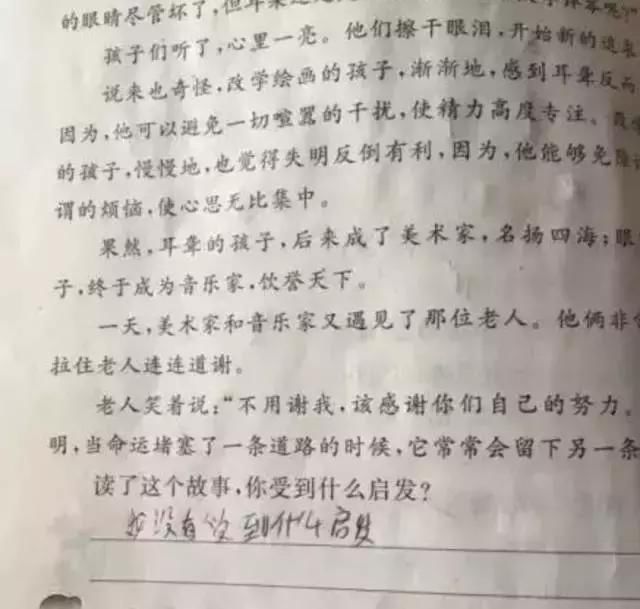 的眼睛尽管坏了,但耳朵还
孩子们听了,心里一亮。他们擦干眼泪,开始新的追求
说来也奇怪,改学绘画的孩子,渐渐地,感到耳聋反而
因为,他可以避免一切喧嚣的干扰,使精力高度专注。
的孩子,慢慢地,也觉得失明反倒有利,因为,他能够免除
谓的烦恼,使心思无比集中。
果然,耳聋的孩子,后来成了美术家,名扬四海;眼
子,终于成为音乐家,饮誉天下。
一天,美术家和音乐家又遇见了那位老人。他俩非
拉住老人连连道谢。
老人笑着说:“不用谢我,该感谢你们自己的努力。
明,当命运堵塞了一条道路的时候,它常常会留下另一条
读了这个故事,你受到什么启发?
我没有收到什么启发